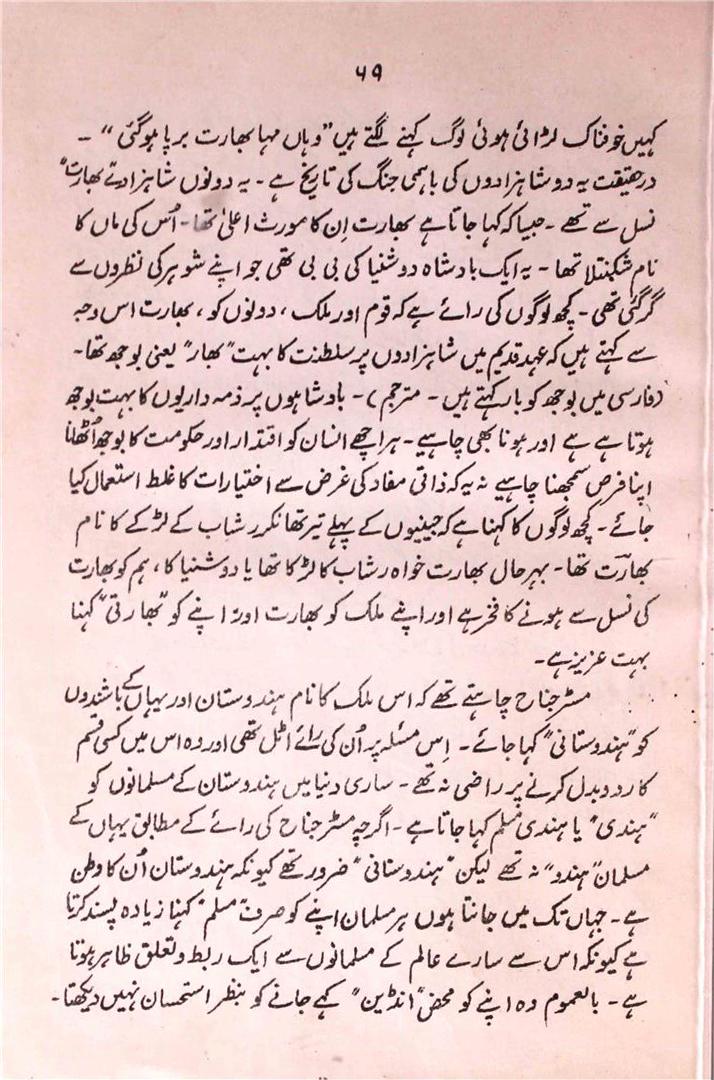 ۶۹
کہیں خوفناک لڑائی ہوئی لوگ کہنے لگتے ہیں "وہاں مہا بھارت برپا ہوگئی" ۔
درحقیقت یہ دو شاہزادوں کی باہمی جنگ کی تاریخ ہے ۔ یہ دونوں شاہزادے "بھارت"
نسل سے تھے ۔ جیسا کہ کہا جاتا ہے بھارت اِن کا مورث اعلیٰ تھا ۔ اُس کی ماں کا
نام شکنتلا تھا ۔ یہ ایک بادشاہ دوشنیا کی بی بی تھی جو اپنے شوہر کی نظروں سے
گر گئی تھی ۔ کچھ لوگوں کی رائے ہے کہ قوم اور ملک ، دونوں کو ، بھارت اس وجہ
سے کہتے ہیں کہ عہد قدیم میں شاہزادوں پر سلطنت کا بہت "بھار" یعنی بوجھ تھا ۔
(فارسی میں بوجھ کو بار کہتے ہیں ۔ مترجم) ۔ بادشاہوں پر ذمہ داریوں کا بہت بوجھ
ہوتا ہے ہے اور ہونا بھی چاہیے ۔ ہر اچھے انسان کو اقتدار اور حکومت کا بوجھ اُٹھانا
اپنا فرض سمجھنا چاہیے نہ یہ کہ ذاتی مفاد کی غرض سے اختیارات کا غلط استعمال کیا
جائے ۔ کچھ لوگوں کا کہنا ہے کہ جینیوں کے پہلے تیرتھانکر رشاب کے لڑکے کا نام
بھارت تھا ۔ بہرحال بھارت خواہ رشاب کا لڑکا تھا یا دوشنیا کا ، ہم کو بھارت
کی نسل سے ہونے کا فخر ہے اور اپنے ملک کو بھارت اور اپنے کو "بھارتی" کہنا
بہت عزیز ہے ۔
مسٹر جناح چاہتے تھے کہ اس ملک کا نام ہندوستان اور یہاں کے باشندوں
کو "ہندوستانی" کہا جائے ۔ اِس مسئلہ پر اُن کی رائے اٹل تھی اور وہ اس میں کسی قسم
کا ردوبدل کرنے پر راضی نہ تھے ۔ ساری دنیا میں ہندوستان کے مسلمانوں کو
"ہندی" یا ہندی مسلم کہا جاتا ہے ۔ اگرچہ مسٹر جناح کی رائے کے مطابق یہاں کے
مسلمان "ہندو" نہ تھے لیکن "ہندوستانی" ضرور تھے کیونکہ ہندوستان اُن کا وطن
ہے ۔ جہاں تک میں جانتا ہوں ہر مسلمان اپنے کو صرف "مسلم" کہنا زیادہ پسند کرتا
ہے کیونکہ اس سے سارے عالم کے مسلمانوں سے ایک ربط و تعلق ظاہر ہوتا
ہے ۔ بالعموم وہ اپنے کو محض "انڈین" کہے جانے کو بنظر استحسان نہیں دیکھتا ۔